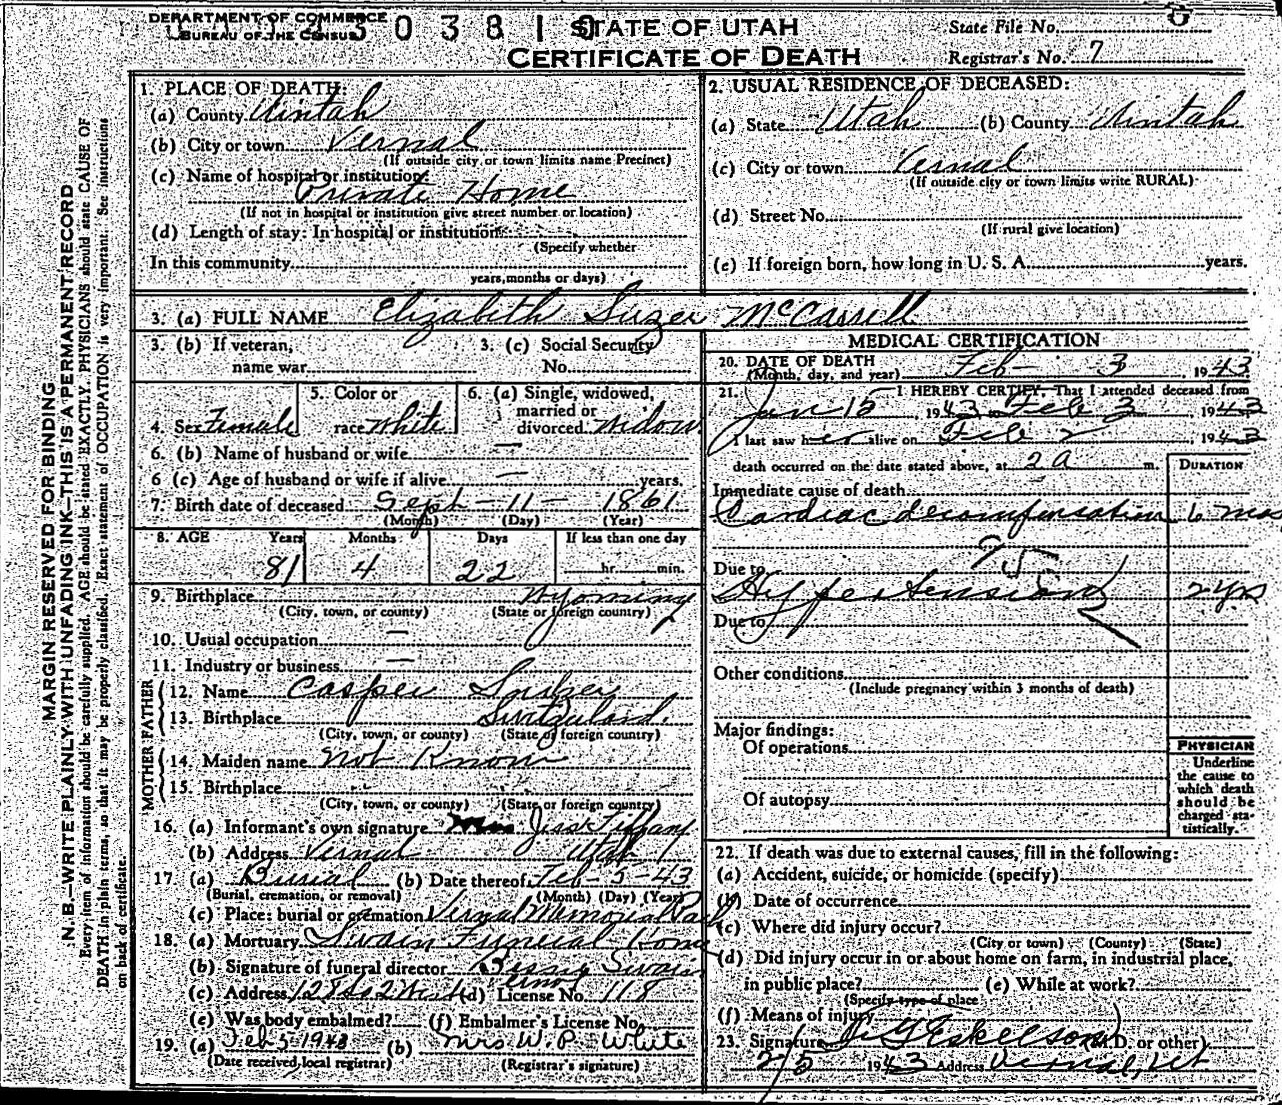 DEPARTMENT OF COMMERCE
BUREAU OF THE CENSUS
STATE OF UTAH
CERTIFICATE OF DEATH
State File No.
Registrar's No. 7
MARGIN RESERVED FOR BINDING
N. B.—WRITE PLAINLY WITH UNFADING INK—THIS IS A PERMANENT RECORD
Every item of information should be carefully supplied. AGE should be stated EXACTLY. PHYSICIANS should state CAUSE OF
DEATH in plain terms, so that it may be properly classified. Exact statement of OCCUPATION is very important. See instructions
on back of certificate.
1. PLACE OF DEATH:
(a) County Uintah
(b) City or town Vernal
(If outside city or town limits name Precinct)
(c) Name of hospital or institution
Private Home
(If not in hospital or institution give street number or location)
(d) Length of stay: In hospital or institution
(Specify whether
In this community
years, months or days)
2. USUAL RESIDENCE OF DECEASED:
(a) State Utah (b) County Uintah
(c) City or town Vernal
(If outside city or town limits write RURAL)
(d) Street No.
(If rural give location)
(e) If foreign born, how long in U. S. A. years.
3. (a) FULL NAME Elizabeth Suzer McCassell
3. (b) If veteran, 3. (c) Social Security
name war No.
4. Sex Female 5. Color or race White 6. (a) Single, widowed, married or divorced Widow
6. (b) Name of husband or wife —
6 (c) Age of husband or wife if alive — years.
7. Birth date of deceased Sept - 11 - 1861
(Month) (Day) (Year)
8. AGE Years Months Days If less than one day
81 4 22 hr. min.
9. Birthplace Wyoming
(City, town, or county) (State or foreign country)
10. Usual occupation —
11. Industry or business —
FATHER
12. Name Casper
13. Birthplace Switzerland.
(City, town, or county) (State or foreign country)
MOTHER
14. Maiden name not Known
15. Birthplace
(City, town, or county) (State or foreign country)
16. (a) Informant's own signature Mrs Jess Tiffany
(b) Address Vernal Utah
17 (a) Burial (b) Date thereof Feb-5-43
(Burial, cremation, or removal) (Month) (Day) (Year)
(c) Place: burial or cremation Vernal Memorial Park
18. (a) Mortuary Swain Funeral Home
(b) Signature of funeral director Bessie Swain
Vernal
(c) Address 128 So 2 West (d) License No. 118
(e) Was body embalmed? (f) Embalmer's License No.
19. (a) Feb 5 1943 (b) Mrs W. P. White
(Date received local registrar) (Registrar's signature)
MEDICAL CERTIFICATION
20. DATE OF DEATH
(Month, day, and year) Feb - 3, 1943
21. I HEREBY CERTIFY, That I attended deceased from
Jan 15, 1943 to Feb 3, 1943
I last saw her alive on Feb 2 1943
death occurred on the date stated above, at 2 a m. DURATION
Immediate cause of death
Cardiac decompensation 6 mos
Due to
Hypertension 2 yrs
Due to
Other conditions
(Include pregnancy within 3 months of death)
Major findings:
Of operations
Of autopsy
PHYSICIAN
Underline
the cause to
which death
should be
charged sta-
tistically.
22. If death was due to external causes, fill in the following:
(a) Accident, suicide, or homicide (specify)
(b) Date of occurrence
(c) Where did injury occur?
(City or town) (County) (State)
(d) Did injury occur in or about home on farm, in industrial place,
in public place? (e) While at work?
(Specify type of place)
(f) Means of injury
23. Signature J. G. Eskelson (M.D. or other)
2/5 1943 Address Vernal, Ut